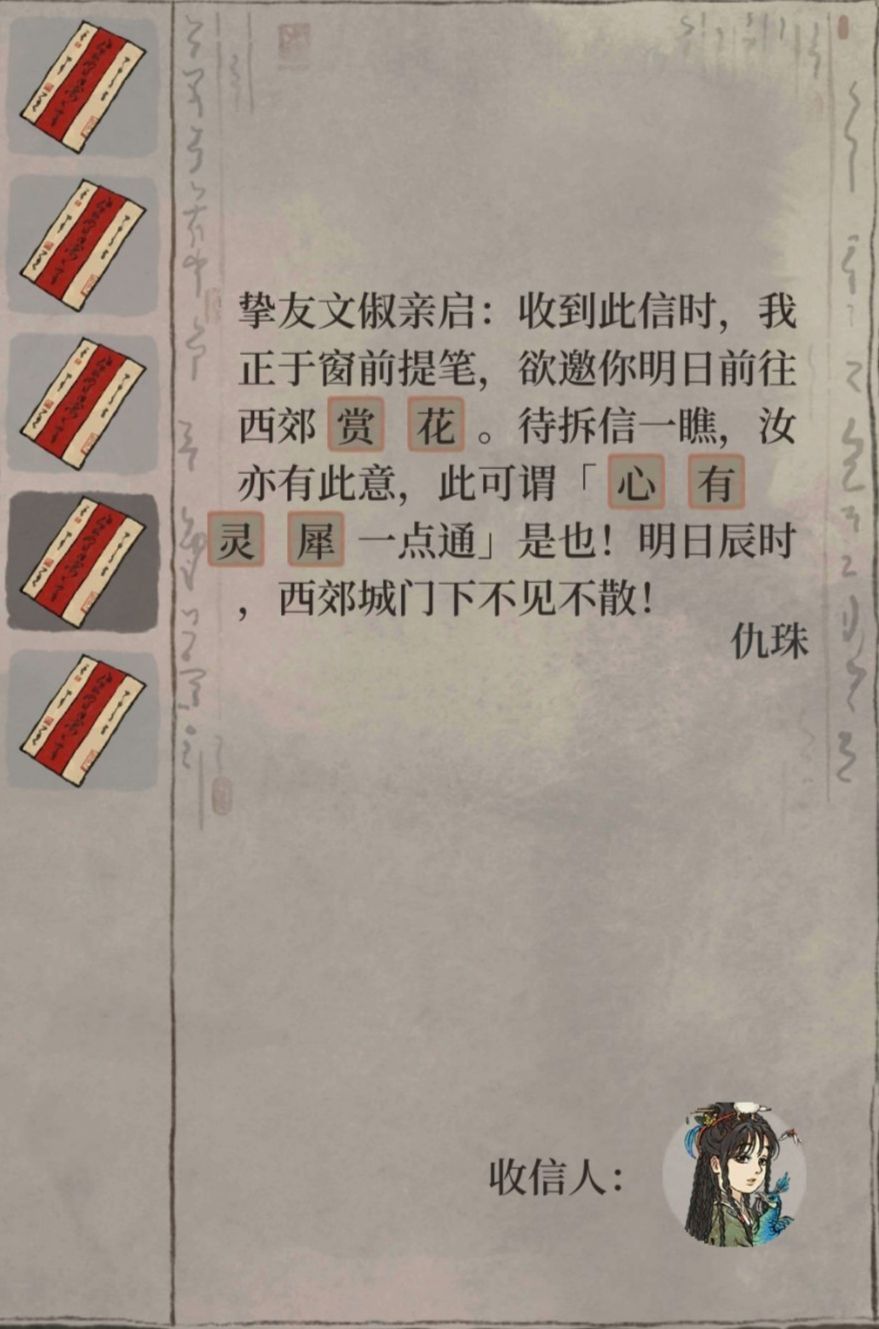 挚友文俶亲启：收到此信时，我
正于窗前提笔，欲邀你明日前往
西郊 赏 花 。待拆信一瞧，汝
亦有此意，此可谓「 心 有
灵 犀 一点通」是也！明日辰时
，西郊城门下不见不散！
仇珠
收信人：